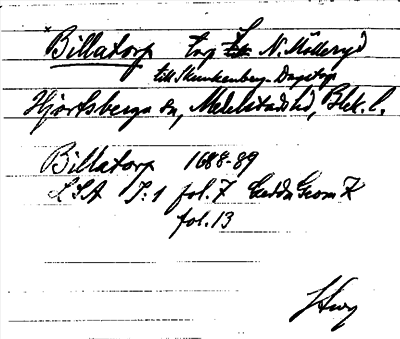 Billatorp torp N. Mölleryd
till Skunkenberg - Dagstorp
Hjortsberga sn, Medelstads hd, Blek. l.
Billatorp 1688-89
LSA I:1 fol. 7 Geom
fol. 13